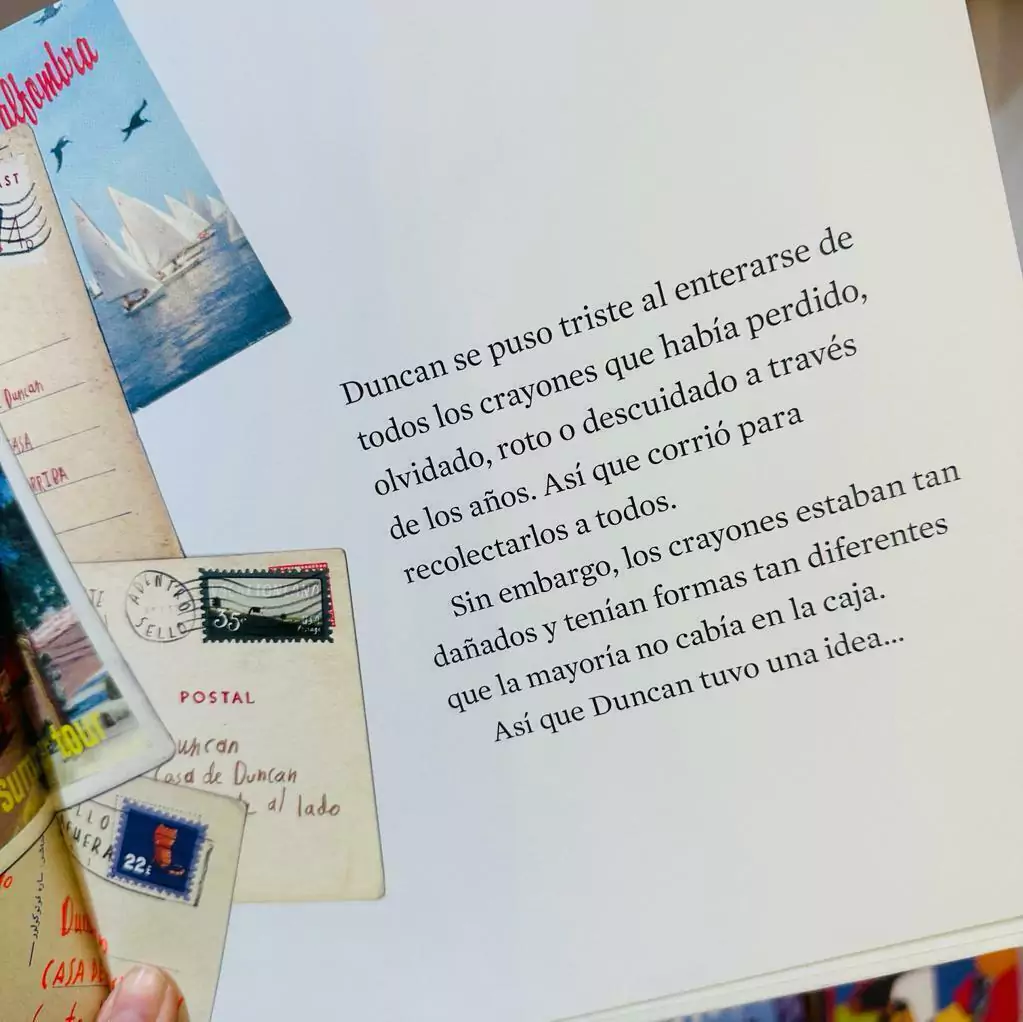 alfombra
Duncan
CASA
35
ADENTRO
SELLO
POSTAL
Duncan
Casa de Duncan
al lado
22¢
tour
CASA DE
Duncan se puso triste al enterarse de
todos los crayones que había perdido,
olvidado, roto o descuidado a través
de los años. Así que corrió para
recolectarlos a todos.
Sin embargo, los crayones estaban tan
dañados y tenían formas tan diferentes
que la mayoría no cabía en la caja.
Así que Duncan tuvo una idea...